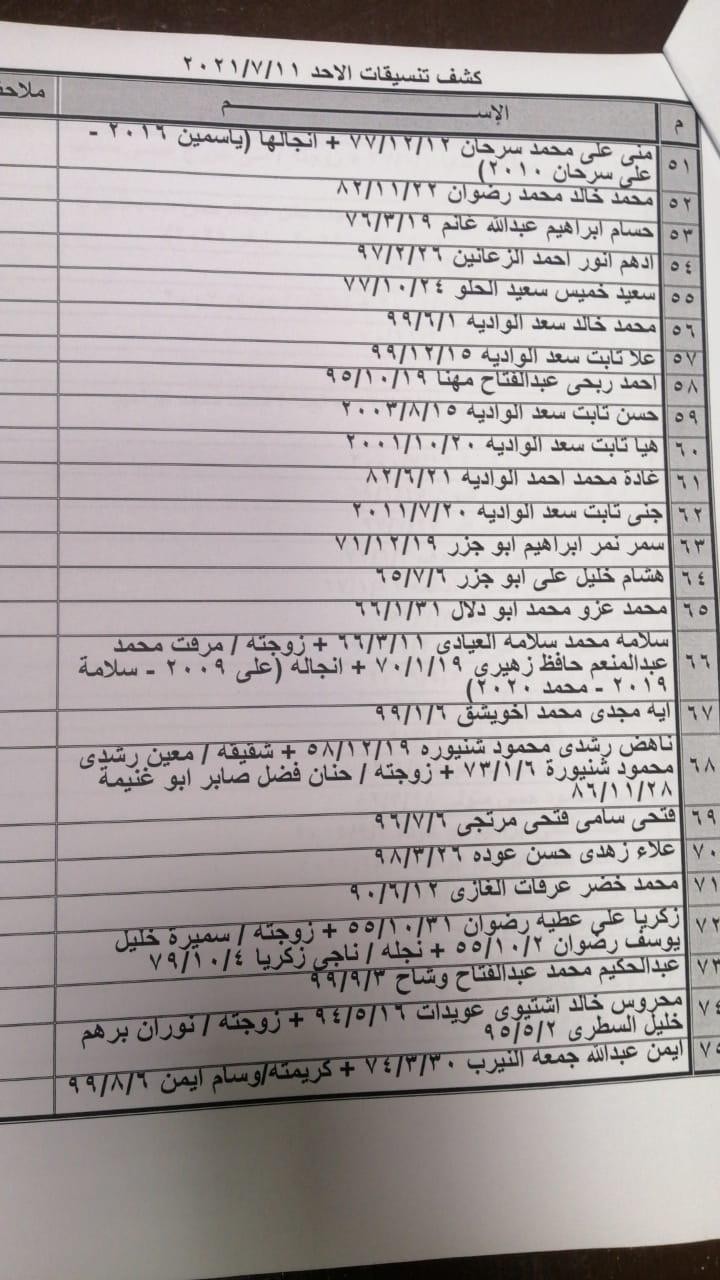 كشف تنسيقات الاحد ٢٠٢١/٧/١١
م الإســــم ملاحـ
٥١ منى على محمد سرحان ٧٧/١٢/١٢ + انجالها (ياسمين ٢٠١٦ -
على سرحان ٢٠١٠)
٥٢ محمد خالد محمد رضوان ٨٢/١١/٢٢
٥٣ حسام ابراهيم عبدالله غانم ٧٦/٣/١٩
٥٤ ادهم انور احمد الزعانين ٩٧/٢/٢٦
٥٥ سعيد خميس سعيد الحلو ٧٧/١٠/٢٤
٥٦ محمد خالد سعد الواديه ٩٩/٦/١
٥٧ علا ثابت سعد الواديه ٩٩/١٢/١٥
٥٨ احمد ربحى عبدالفتاح مهنا ٩٥/١٠/١٩
٥٩ حسن ثابت سعد الواديه ٢٠٠٣/٨/١٥
٦٠ هيا ثابت سعد الواديه ٢٠٠١/١٠/٢٠
٦١ غادة محمد احمد الواديه ٨٢/٦/٢١
٦٢ جنى ثابت سعد الواديه ٢٠١١/٧/٢٠
٦٣ سمر نمر ابراهيم ابو جزر ٧١/١٢/١٩
٦٤ هشام خليل على ابو جزر ٦٥/٧/٦
٦٥ محمد عزو محمد ابو دلال ٦٦/١/٣١
٦٦ سلامه محمد سلامه العيادى ٦٦/٣/١١ + زوجته / مرفت محمد
عبدالمنعم حافظ زهيرى ٧٠/١/١٩ + انجاله (على ٢٠٠٩ - سلامة
٢٠١٩ - محمد ٢٠٢٠)
٦٧ ايه مجدى محمد اخويشق ٩٩/١/٦
٦٨ ناهض رشدى محمود شنيوره ٥٨/١٢/١٩ + شقيقه / معين رشدى
محمود شنيورة ٧٣/١/٦ + زوجته / حنان فضل صابر ابو غنيمة
٨٦/١١/٢٨
٦٩ فتحى سامى فتحى مرتجى ٩٦/٧/٦
٧٠ علاء زهدى حسن عوده ٩٨/٣/٢٦
٧١ محمد خضر عرفات الغازى ٩٠/٦/١٢
٧٢ زكريا على عطيه رضوان ٥٥/١٠/٣١ + زوجته / سميرة خليل
يوسف رضوان ٥٥/١٠/٢ + نجله / ناجى زكريا ٧٩/١٠/٤
٧٣ عبدالحكيم محمد عبدالفتاح وشاح ٩٩/٩/٣
٧٤ محروس خالد اشتيوى عويدات ٩٤/٥/١٦ + زوجته / نوران برهم
خليل السطرى ٩٥/٥/٢
٧٥ ايمن عبدالله جمعه النيرب ٧٤/٣/٣٠ + كريمته/وسام ايمن ٩٩/٨/٦